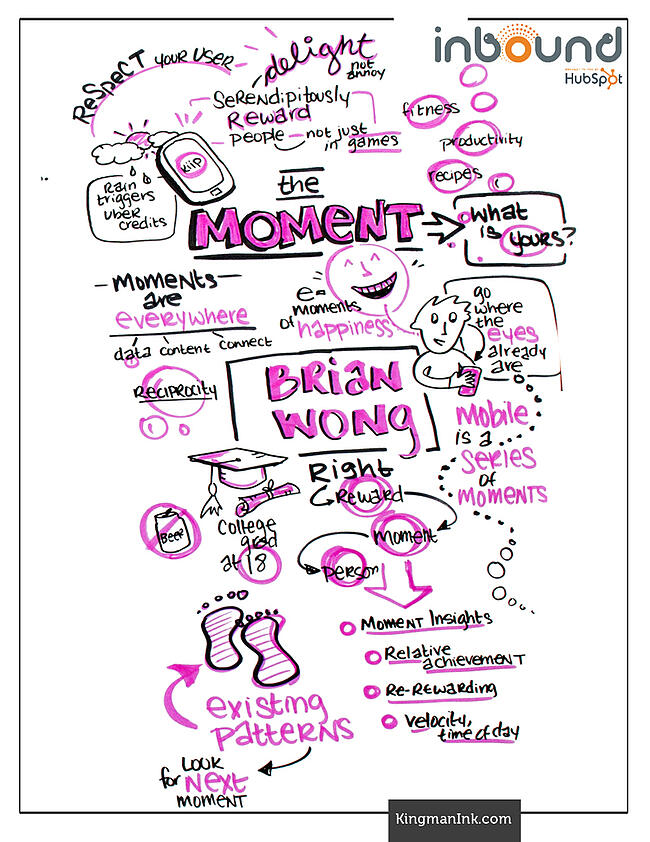 inbound
BROUGHT TO YOU BY
HubSpot
ReSpeCT YOUR USER
delight
not
annoy
SeReNdipitously
Reward
people — not just
in games
Kiip
Rain
triggers
Uber
credits
fitness
productivity
recipes
the
MOMENT
What
is yours?
— Moments —
are
everywhere
data content connect
Reciprocity
e-
moments
of happiness
go
where
the
eyes
already
are
BRIAN
WONG
Mobile
is a
series
of
moments
Right
Reward
moment
person
Beer
College
grad
at 18
Moment Insights
Relative
achievement
Re-Rewarding
velocity,
time of day
existing
patterns
Look
for Next
moment
KingmanInk.com